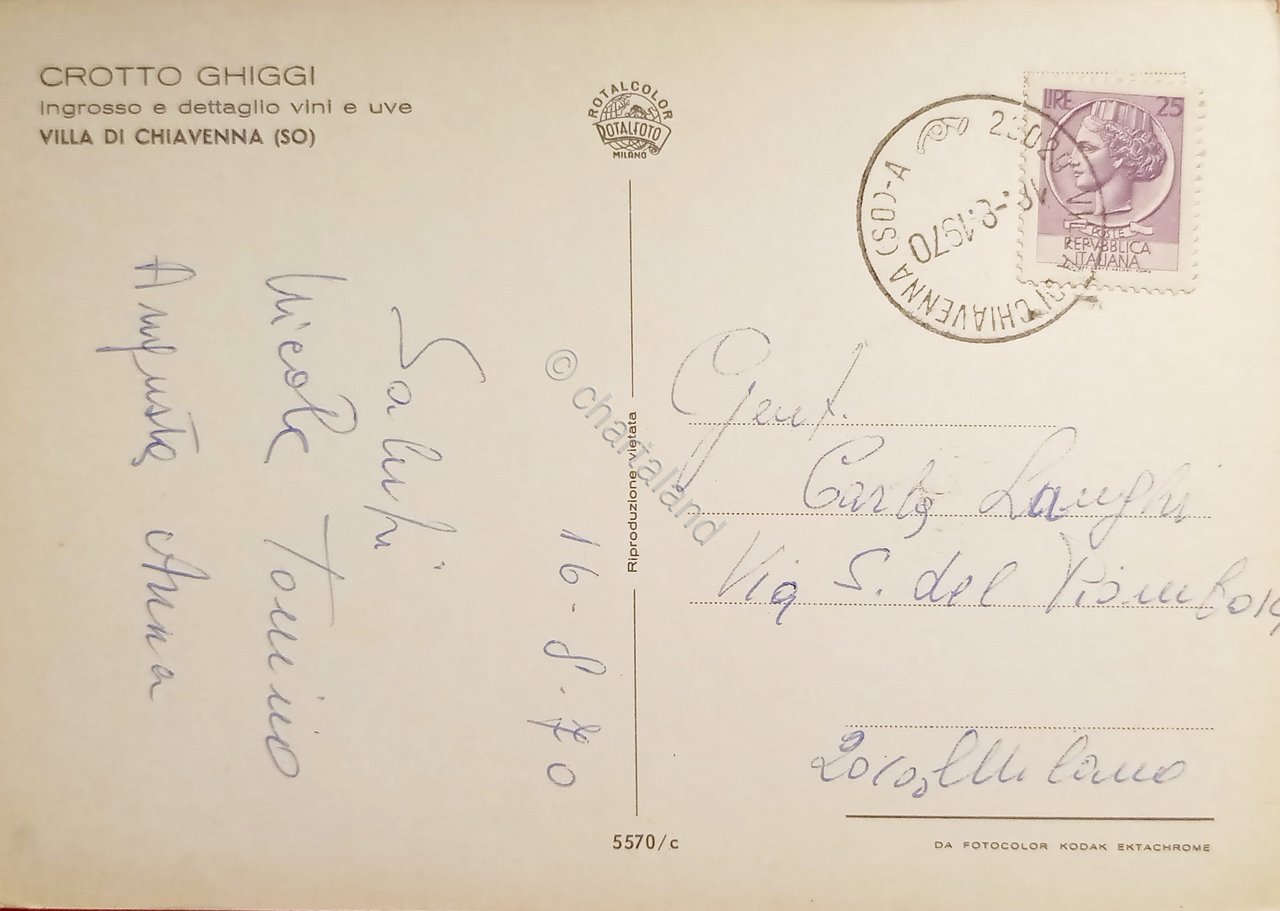 CROTTO GHIGGI
Ingrosso e dettaglio vini e uve
VILLA DI CHIAVENNA (SO)
ROTALCOLOR
ROTALFOTO
MILANO
LIRE 25
POSTE
REPVBBLICA
ITALIANA
DI CHIAVENNA (SO)-A
8.1970
16-8-70
Saluti
Nicola Tonino
Augusta Anna
Riproduzione vietata
© chartaland
Gent.
Carlo Langhi
Via S. del Piombo
Milano
5570/c
DA FOTOCOLOR KODAK EKTACHROME